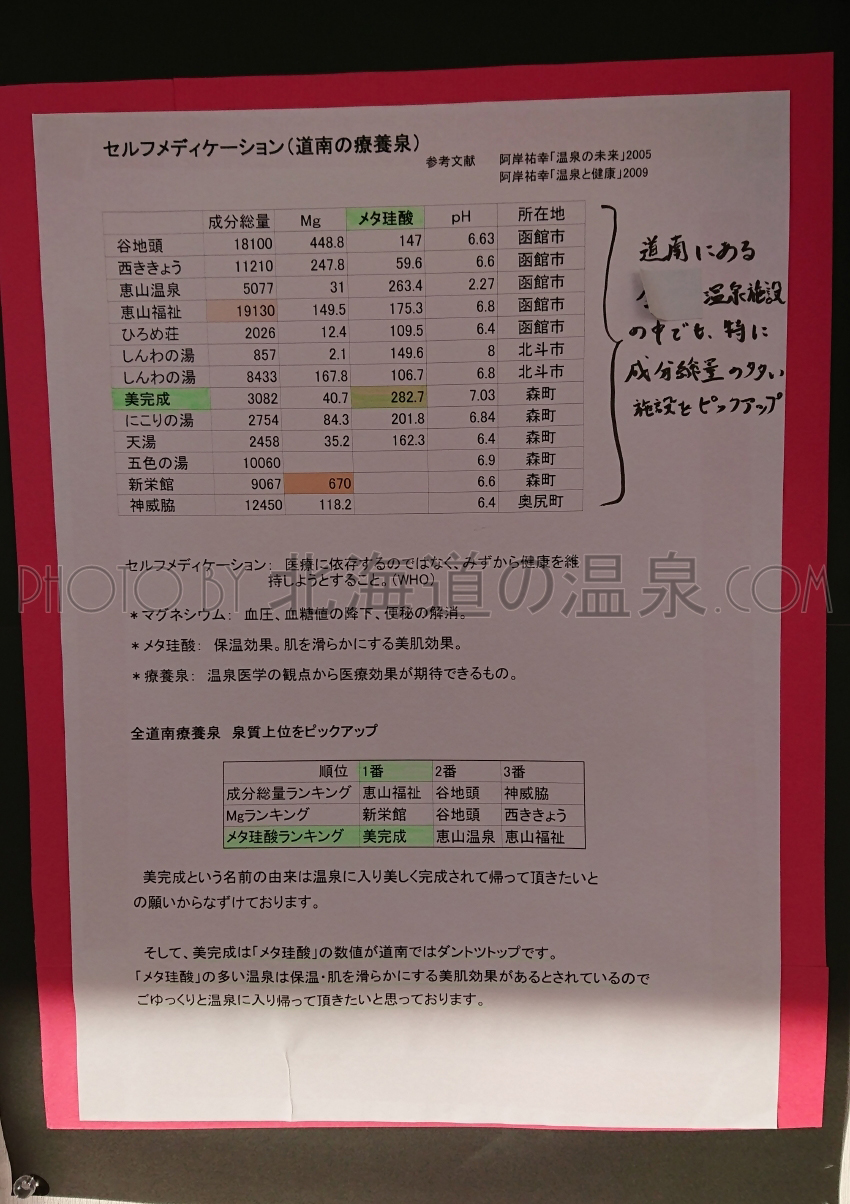 セルフメディケーション(道南の療養泉)
参考文献 阿岸祐幸「温泉の未来」2005
阿岸祐幸「温泉と健康」2009
成分総量 Mg メタ珪酸 pH 所在地
谷地頭 18100 448.8 147 6.63 函館市
西ききょう 11210 247.8 59.6 6.6 函館市
恵山温泉 5077 31 263.4 2.27 函館市
恵山福祉 19130 149.5 175.3 6.8 函館市
ひろめ荘 2026 12.4 109.5 6.4 函館市
しんわの湯 857 2.1 149.6 8 北斗市
しんわの湯 8433 167.8 106.7 6.8 北斗市
美完成 3082 40.7 282.7 7.03 森町
にこりの湯 2754 84.3 201.8 6.84 森町
天湯 2458 35.2 162.3 6.4 森町
五色の湯 10060 6.9 森町
新栄館 9067 670 6.6 森町
神威脇 12450 118.2 6.4 奥尻町
道南にある
温泉施設
の中でも、特に
成分総量の多い
施設をピックアップ
セルフメディケーション: 医療に依存するのではなく、みずから健康を維
持しようとすること。(WHO)
PHOTO BY 北海道の温泉.COM
*マグネシウム: 血圧、血糖値の降下、便秘の解消。
*メタ珪酸: 保温効果。肌を滑らかにする美肌効果。
*療養泉: 温泉医学の観点から医療効果が期待できるもの。
全道南療養泉 泉質上位をピックアップ
順位 1番 2番 3番
成分総量ランキング 恵山福祉 谷地頭 神威脇
Mgランキング 新栄館 谷地頭 西ききょう
メタ珪酸ランキング 美完成 恵山温泉 恵山福祉
美完成という名前の由来は温泉に入り美しく完成されて帰って頂きたいと
の願いからなずけております。
そして、美完成は「メタ珪酸」の数値が道南ではダントツトップです。
「メタ珪酸」の多い温泉は保温・肌を滑らかにする美肌効果があるとされているので
ごゆっくりと温泉に入り帰って頂きたいと思っております。